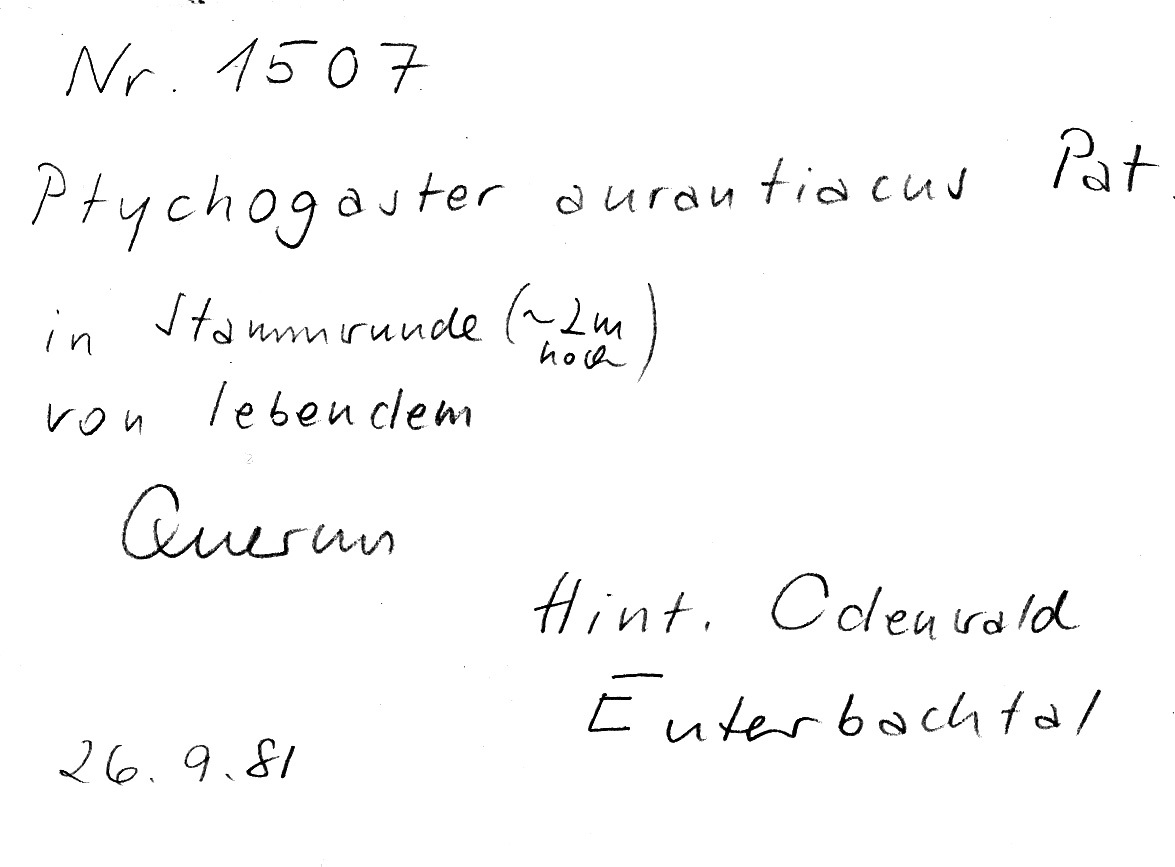 Nr. 1507
Ptychogaster aurantiacus Pat.
in Stammwunde (~2m hoch)
von lebendem
Quercus
Hint. Odenwald
Euterbachtal
26.9.81